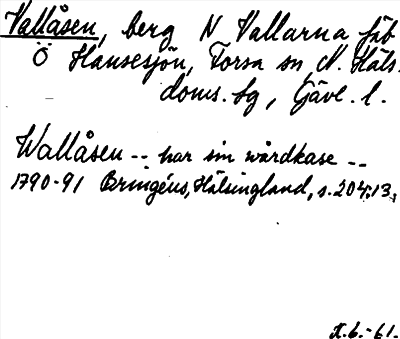 Vallåsen, berg N Vallarna fäb
Ö Hansesjön, Forsa sn N. Häls.
doms. sg, Gävl. l.
Wallåsen -- har sin wårdkase --
1790-91 Bringéus, Hälsingland, s. 204:13.
K.b.-61.